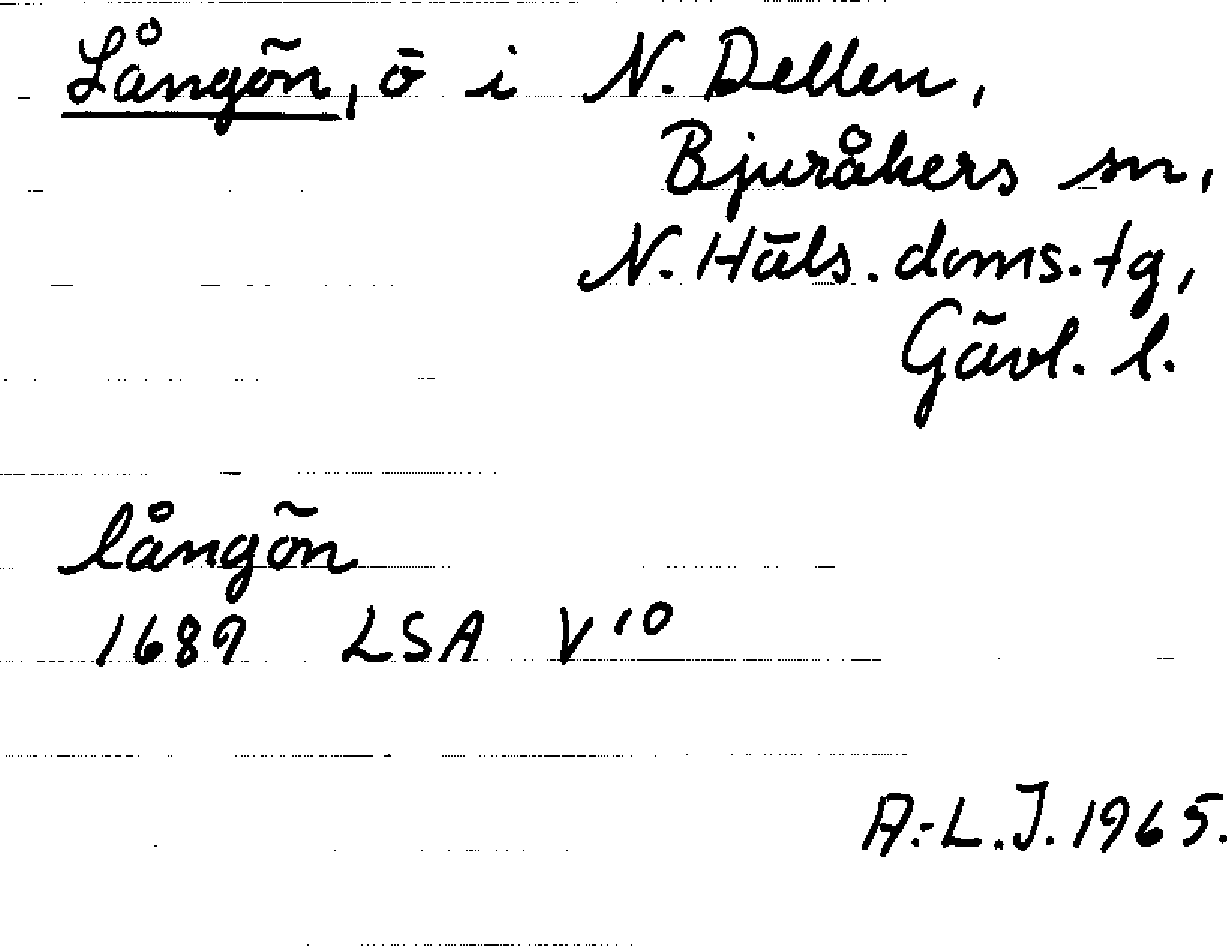 Långön, ö i N. Dellen,
Bjuråkers sn,
N. Häls. doms. tg,
Gävl. l.
långön
1689 LSA V¹⁰
A.-L.J. 1965.